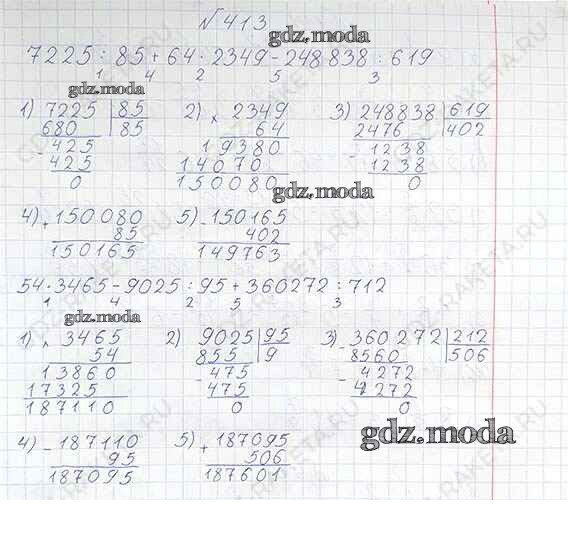 № 413
gdz.moda
7225 : 85 + 64 · 2349 - 248838 : 619
1 4 2 5 3
gdz.moda
1) 7225 | 85 2) × 2349 3) 248838 | 619
680 | 85 64 2476 | 402
- 425 19380 - 1238
425 14070 1238
0 150080 0
gdz.moda
4) + 150080 5) - 150165
85 402
150165 149763
54 · 3465 - 9025 : 95 + 360272 : 712
1 4 2 5 3
gdz.moda
1) × 3465 2) 9025 | 95 3) - 360272 | 212
54 855 | 9 8560 | 506
13860 - 475 - 4272
17325 475 4272
187110 0 0
gdz.moda
4) - 187110 5) + 187095
95 506
187095 187601
GDZ-RAKETA.RU